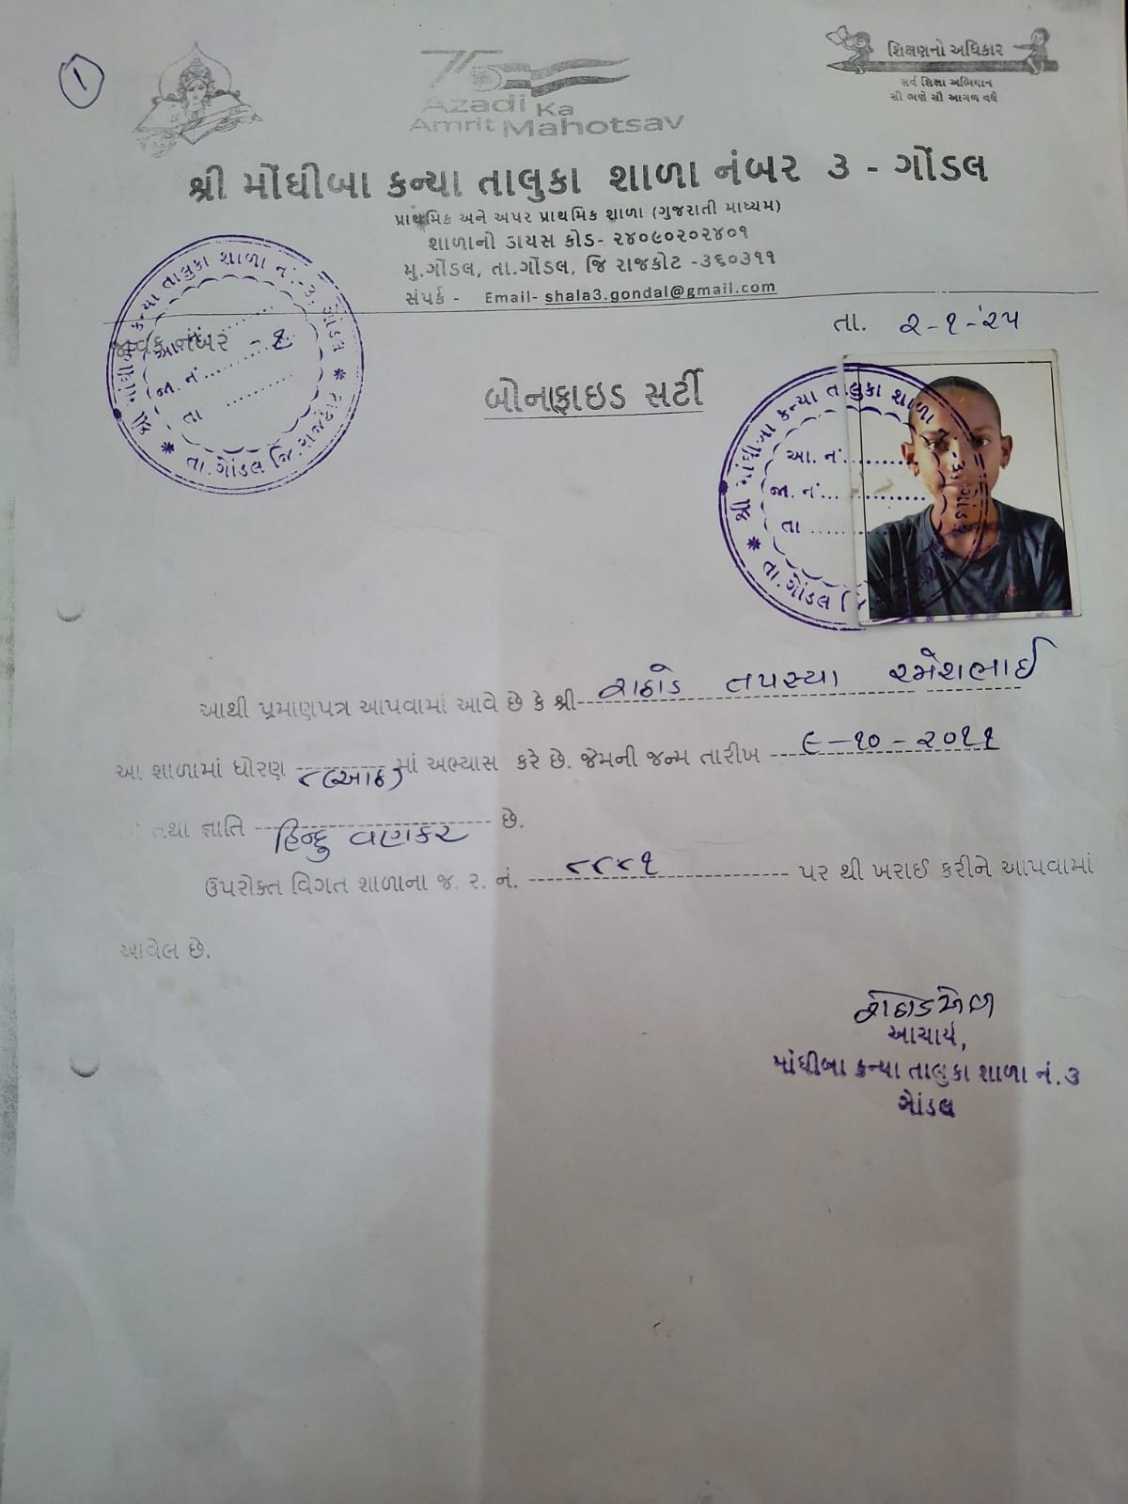 1
75
Azadi Ka
Amrit Mahotsav
શિક્ષણનો અધિકાર
સર્વ શિક્ષા અભિયાન
સૌ ભણે સૌ આગળ વધે
શ્રી મોંઘીબા કન્યા તાલુકા શાળા નંબર ૩ - ગોંડલ
પ્રાથમિક અને અપર પ્રાથમિક શાળા (ગુજરાતી માધ્યમ)
શાળાનો ડાયસ કોડ- ૨૪૦૯૦૨૦૨૪૦૧
મુ.ગોંડલ, તા.ગોંડલ, જિ રાજકોટ -૩૬૦૩૧૧
સંપર્ક - Email- shala3.gondal@gmail.com
તા. ૨-૧-'૨૫
જાવક નંબર - ૧
શ્રી મોંઘીબા કન્યા તાલુકા શાળા નં.-૩, ગોંડલ
આ. નં.
જા. નં.
તા
તા. ગોંડલ જિ. રાજકોટ
બોનાફાઇડ સર્ટી
શ્રી મોંઘીબા કન્યા તાલુકા શાળા
આ. નં.
જા. નં.
તા
તા. ગોંડલ જિ
આથી પ્રમાણપત્ર આપવામાં આવે છે કે શ્રી રાઠોડ તપસ્યા રમેશભાઈ
આ શાળામાં ધોરણ ૮(આઠ) માં અભ્યાસ કરે છે. જેમની જન્મ તારીખ ૯-૧૦-૨૦૧૧
તથા જ્ઞાતિ હિન્દુ વણકર છે.
ઉપરોક્ત વિગત શાળાના જ. ર. નં. ૮૮૪૧ પર થી ખરાઈ કરીને આપવામાં
આવેલ છે.
આચાર્ય,
મોંઘીબા કન્યા તાલુકા શાળા નં.૩
ગોંડલ